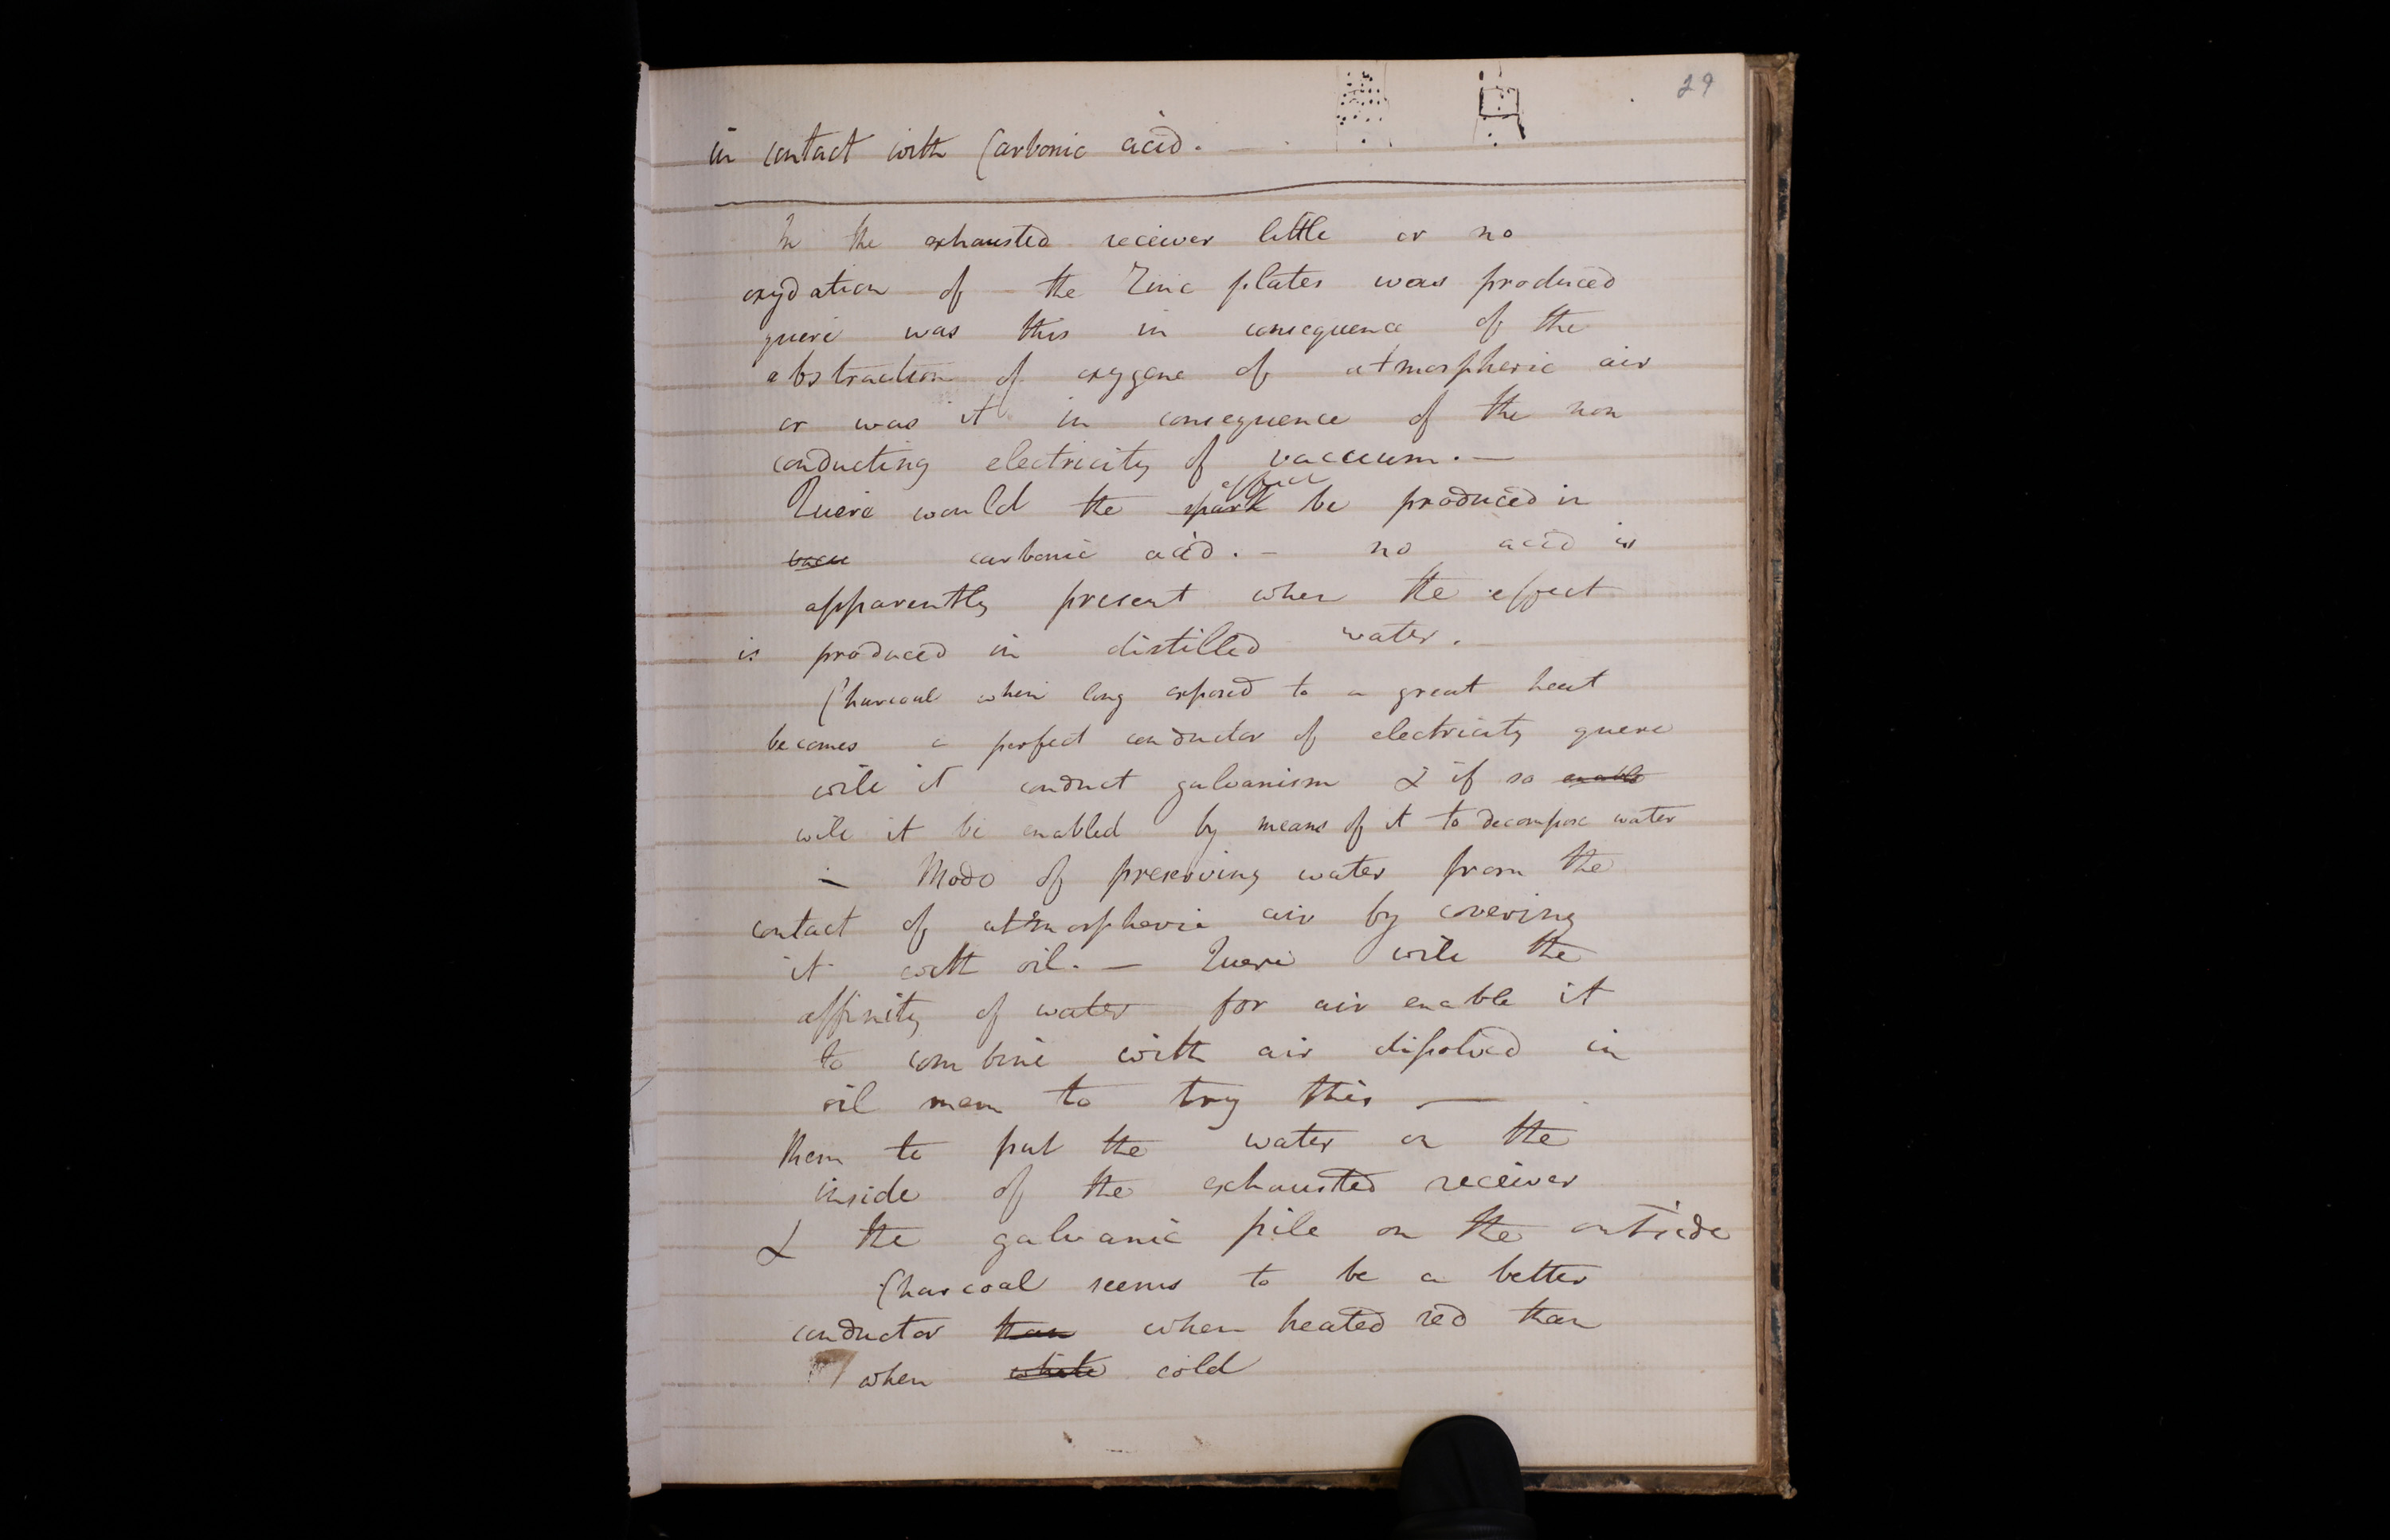 29
in contact with Carbonic acid. —
In the exhausted receiver little or no
oxydation of the Zinc plates was produced
quere was this in consequence of the
abstraction of oxygene of atmospheric air
or was it in consequence of the non
conducting electricity of vaccuum. —
effect
Quere would the spark be produced in
vacu carbonic acid. — no acid is
apparently present when the effect
is produced in distilled water.
Charcoal when long exposed to a great heat
becomes a perfect conductor of electricity quere
will it conduct galvanism & if so enable
will it be enabled by means of it to decompose water
— Mode of preserving water from the
contact of atmospheric air by covering
it with oil. — Quere will the
affinity of water for air enable it
to combine with air dissolved in
oil mem to try this —
Mem to put the water on the
inside of the exhausted receiver
& the galvanic pile on the outside
Charcoal seems to be a better
conductor than when heated red than
when white cold